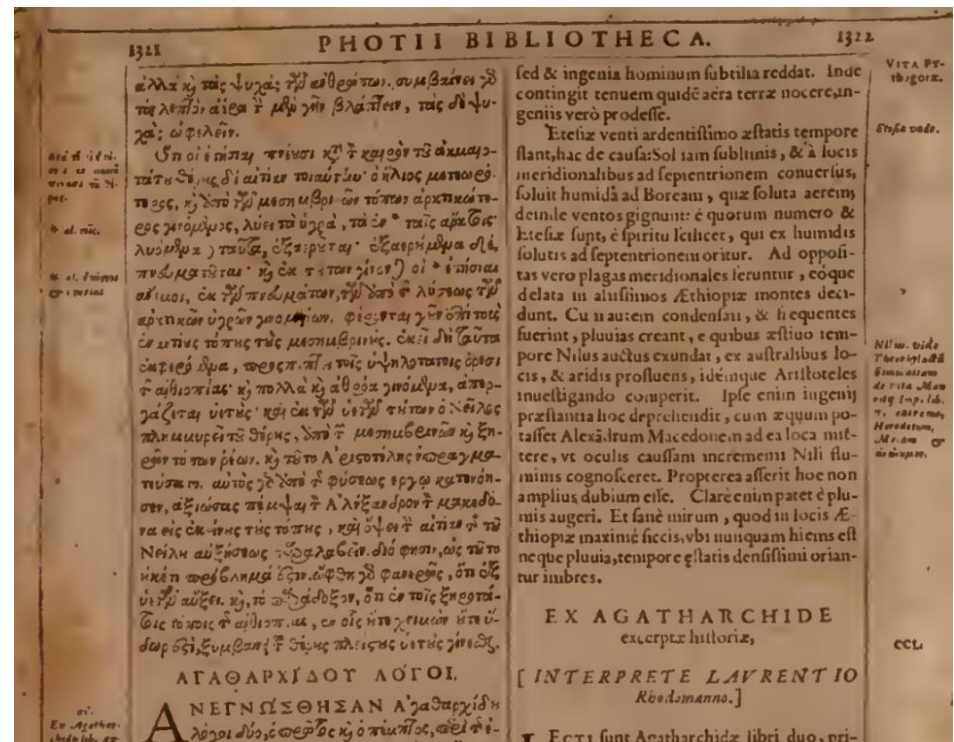 1321 PHOTII BIBLIOTHECA. 1322
ἀλλὰ καὶ τὰς ψυχὰς τῶν ἀνθρώπων. συμβαίνει γὸ
τὸν λεπτὸν ἀέρα τὴν μὲν γῆν βλάπτειν, τὰς δὲ ψυ-
χὰς ὠφελεῖν.
Ὅτι οἱ ἐτησίαι πνέουσι κατὰ τὸν καιρὸν τοῦ ἀκμαιο-
τάτου θέρους δι' αἰτίαν τοιαύτην· ὁ ἥλιος μετεωρό-
τερος, καὶ ἀπὸ τῶν μεσημβρινῶν τόπων ἀρκτικώτε-
ρος γινόμενος, λύει τὰ ὑγρὰ, τὰ ἐν * ταῖς ἄρκτοις·
λυόμενα δὲ ταῦτα, ἐξαεροῦται· ἐξαερούμενα δὲ,
πνευματοῦται· καὶ ἐκ τούτων γίνονται οἱ * ἐτησίαι
ἄνεμοι, ἐκ τῶν πνευμάτων, τῶν ἀπὸ τῆς λύσεως τῶν
ἀρκτικῶν ὑγρῶν γινομένων.
ἐναντίους τόπους τοὺς μεσημβρινούς. ἐκεῖ δὴ ταῦτα
ἐκφερόμενα, προσπίπτει τοῖς ὑψηλοτάτοις ὄρεσι
τῆς αἰθιοπίας· καὶ πολλὰ καὶ ἀθρόα γινόμενα, ἀπερ-
γάζεται ὑετούς· καὶ ἐκ τῶν ὑετῶν τούτων ὁ Νεῖλος
πλημμυρεῖ τοῦ θέρους, ἀπὸ τῶν μεσημβρινῶν καὶ ξη-
ρῶν τόπων ῥέων. καὶ τοῦτο Ἀριστοτέλης ἐπραγμα-
τεύσατο. αὐτὸς γὸ ἀπὸ τῆς φύσεως ἔργῳ κατενόη-
σεν, ἀξιώσας πέμψαι τὸν Ἀλέξανδρον τὸν μακεδό-
να εἰς ἐκείνους τοὺς τόπους, καὶ ὄψει τὴν αἰτίαν τῆς τοῦ
Νείλου αὐξήσεως παραλαβεῖν. διό φησιν, ὡς τοῦτο
οὐκέτι πρόβλημά ἐστιν. ὤφθη γὸ φανερῶς, ὅτι ἐξ
ὑετῶν αὔξει. καὶ, τὸ παράδοξον, ὅτι ἐν τοῖς ξηροτά-
τοις τόποις τῆς αἰθιοπίας, ἐν οἷς οὔτε χειμὼν οὔτε ὕ-
δωρ ἐστὶ, ξυμβαίνει τοῦ θέρους πλείστους ὑετοὺς γίνεσθαι.
ΑΓΑΘΑΡΧΙΔΟΥ ΛΟΓΟΙ.
ΑΝΕΓΝΩΣΘΗΣΑΝ Ἀγαθαρχίδου
λόγοι δύο, ὁ πρῶτος καὶ ὁ πέμπτος,
ſed & ingenia hominum ſubtilia reddat. Inde
contingit tenuem quidē aëra terræ nocere, in-
geniis verò prodeſſe.
Eteſiæ venti ardentiſſimo æſtatis tempore
flant, hac de cauſa: Sol iam ſublimis, & à locis
meridionalibus ad ſeptentrionem conuerſus,
ſoluit humida ad Boream, quæ ſoluta aerem,
deinde ventos gignunt: è quorum numero &
Eteſiæ ſunt, è ſpiritu ſcilicet, qui ex humidis
ſolutis ad ſeptentrionem oritur. Ad oppoſi-
tas vero plagas meridionales feruntur, eóque
delata in altiſſimos Æthiopiæ montes deci-
dunt. Cum autem condenſati, & frequentes
fuerint, pluuias creant, e quibus æſtiuo tem-
pore Nilus auctus exundat, ex auſtralibus lo-
cis, & aridis profluens, idémque Ariſtoteles
inueſtigando comperit. Ipſe enim ingenij
præſtantia hoc deprehendit, cum æquum pu-
taſſet Alexādrum Macedonem ad ea loca mit-
tere, vt oculis cauſſam incrementi Nili flu-
minis cognoſceret. Propterea aſſerit hoc non
amplius dubium eſſe. Clarè enim patet è plu-
uiis augeri. Et ſanè mirum, quod in locis Æ-
thiopiæ maximè ſiccis, vbi nunquam hiems eſt
neque pluuia, tempore ęſtatis denſiſſimi orian-
tur imbres.
EX AGATHARCHIDE
excerptæ hiſtoriæ,
[INTERPRETE LAVRENTIO
Rhodomanno.]
LECTI ſunt Agatharchidæ libri duo, pri-
VITA PY-
thagoræ.
Eteſiæ unde.
Nilus. vide
Herodotum,
CCL.
* al. τοῖς.
Ex Agathar-